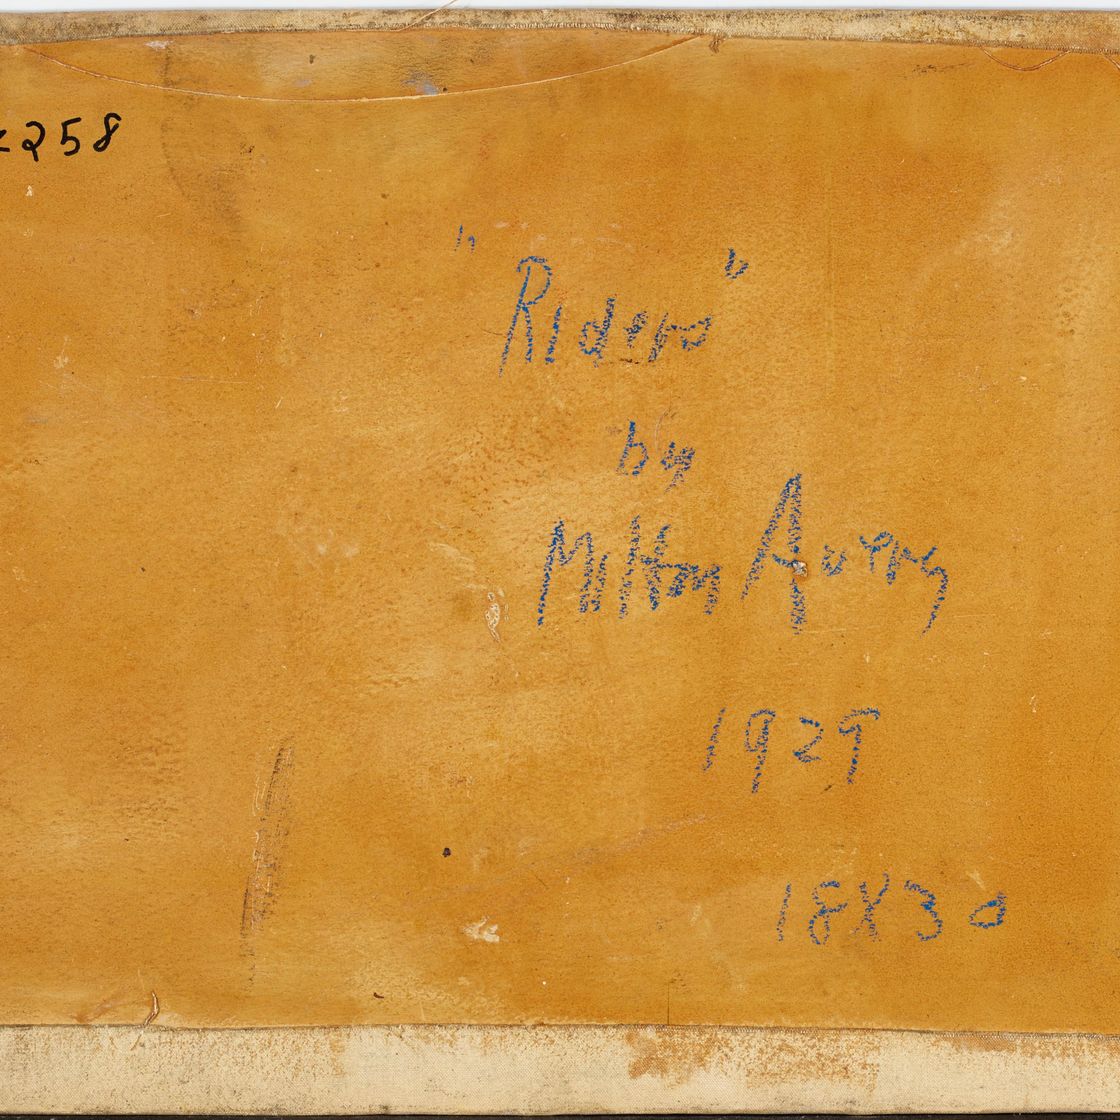 258
"Riders"
by
Milton Avery
1929
18X30